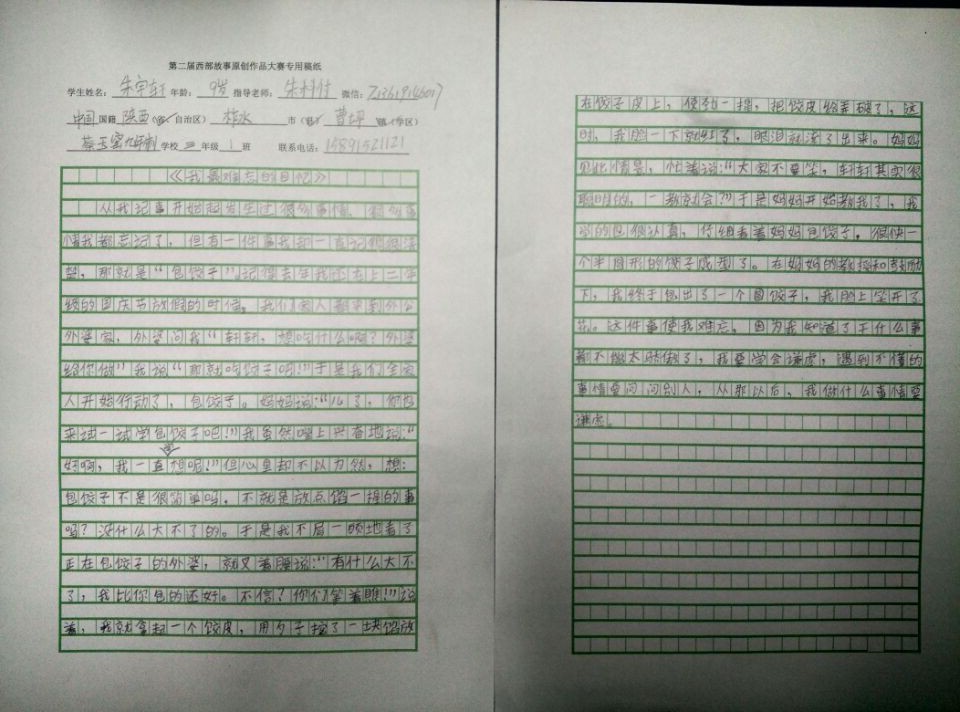 第二届西部故事原创作品大赛专用稿纸
学生姓名：朱宇轩 年龄：9岁 指导老师：朱科仕 微信：Z13619146017
中国 国籍 陕西（省、自治区） 柞水 市（县） 曹坪 镇（学区）
蔡玉窑九年制 学校 三 年级 1 班 联系电话：15891521121
《我最难忘的回忆》
从我记事开始起发生过很多事情，很多事
情我都忘记了，但有一件事我却一直记得很清
楚，那就是“包饺子”。记得去年我还在上二年
级的国庆节放假的时候，我们家人都来到外公
外婆家，外婆问我“轩轩，想吃什么啊？外婆
给你做”我说“那就吃饺子吧！”于是我们全家
人开始行动了，包饺子。妈妈说：“儿了，你也
来试一试学包饺子吧！”我虽然嘴上兴奋地说：“
好啊，我一直想学呢！”但心里却不以为然，想：
包饺子不是很简单吗，不就是放点馅一捏的事
吗？没什么大不了的。于是我不屑一顾地看了
正在包饺子的外婆，就叉着腰说：“有什么大不
了，我比你包的还好。不信？你们等着瞧！”说
着，我就拿起一个饺皮，用勺子挖了一块馅放
在饺子皮上，使劲一捏，把饺皮给弄破了，这
时，我脸一下就红了，眼泪就流了出来。妈妈
见此情景，忙着说：“大家不要笑，轩轩其实很
聪明的，一教就会？”于是妈妈开始教我了，我
学的也很认真，仔细看着妈妈包饺子。很快一
个半圆形的饺子成型了。在妈妈的教授和鼓励
下，我终于包出了一个圆饺子，我脸上笑开了
花。这件事使我难忘，因为我知道了干什么事
都不能太骄傲了，我要学会谦虚，遇到不懂的
事情要问问别人，从那以后，我做什么事情要
谦虚。